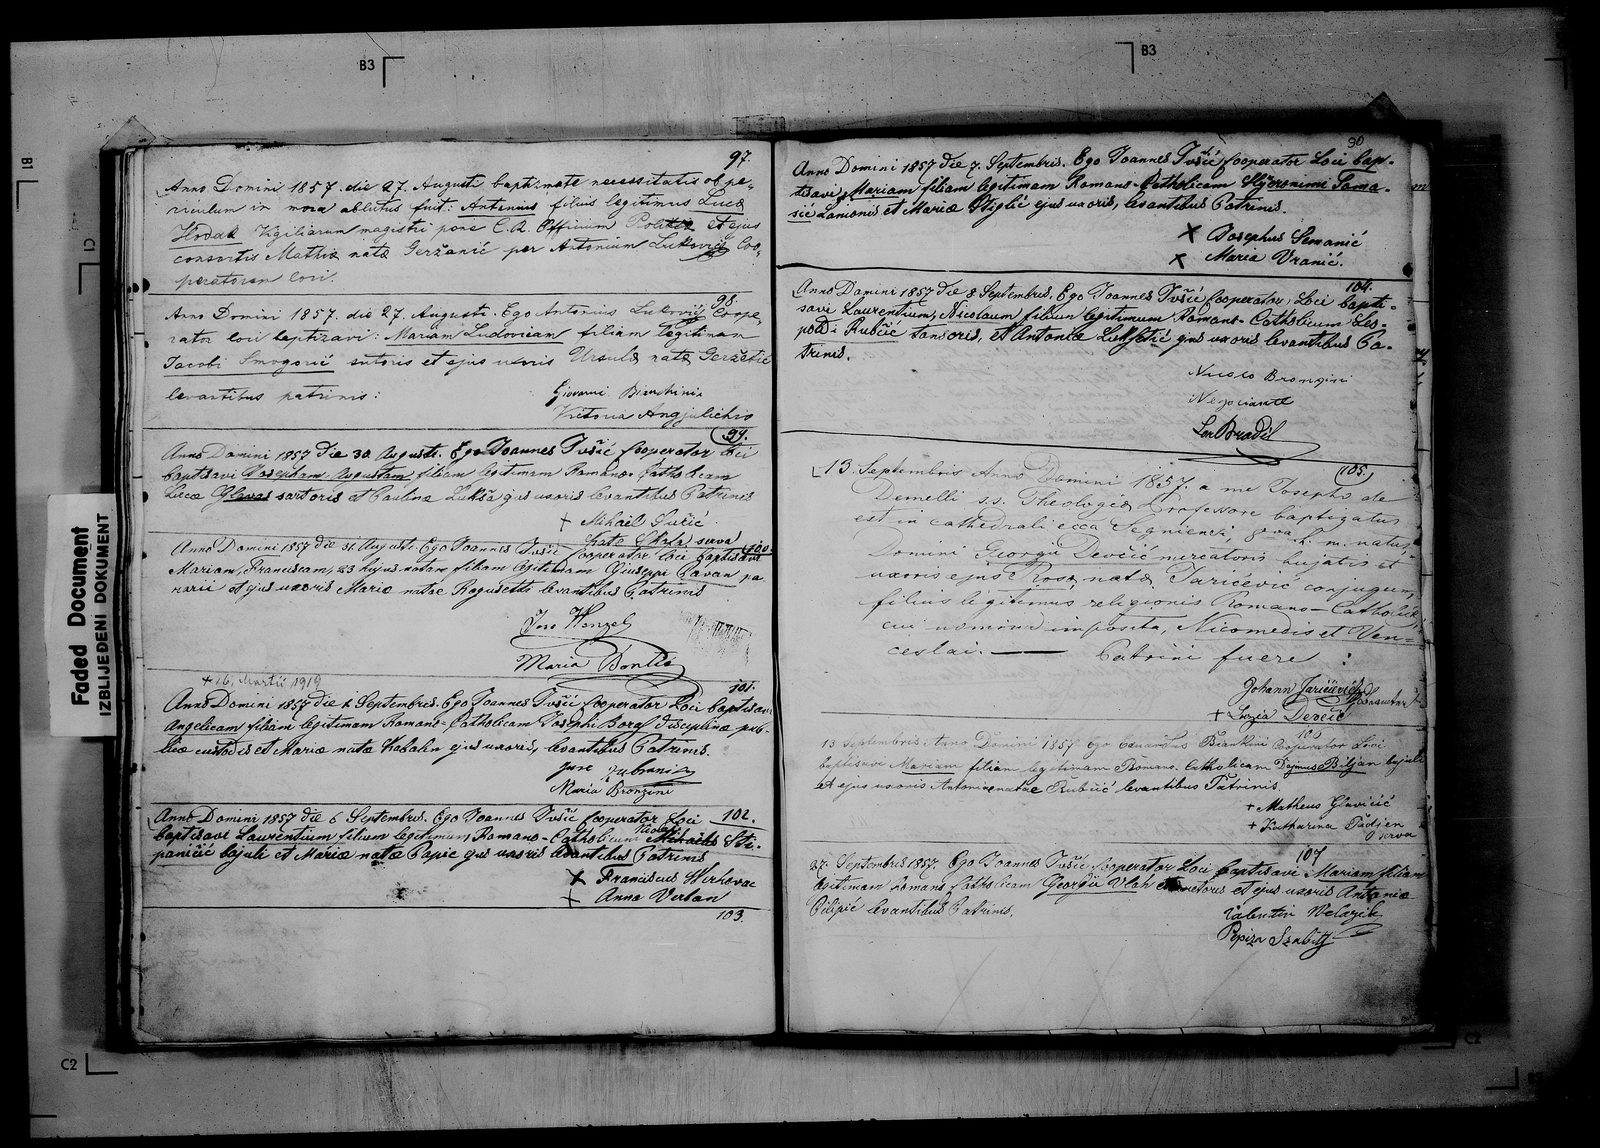 B3
B3
B1
C1
Faded Document
IZBLIJEĐENI DOKUMENT
97.
Anno Domini 1857. die 27. Augusti baptismate necessitatis ob pe-
riculum in mora ablutus fuit: Antonius filius legitimus Lucæ
Hodak Vigiliarum magistri pone C. R. Officium et ejus
consortis Mathiæ natæ Geržanić per Antonium Luković Coo-
peratorem loci.
98.
Anno Domini 1857. die 27. Augusti. Ego Antonius Luković Coope-
rator loci baptizavi: Mariam Ludovicam filiam legitimam
Jacobi Smogović sutoris et ejus uxoris Ursulæ natæ
levantibus patrinis:
Giovanni Bianchini
Vittoria
99.
Anno Domini 1857 die 30 Augusti. Ego Joannes Tušić Cooperator Loci
baptisavi Josepham Augustam filiam legitimam Romano Catholicam
Lucæ Glavas sartoris et Paulinæ Lukša ejus uxoris levantibus Patrinis
+ Mihail Sučić
+ Kate serva
100.
Anno Domini 1857 die 31 Augusti Ego Joannes Tušić Cooperator Loci baptisavi
Mariam, Franciscam, 23 hujus natam filiam legitimam Giuseppi Pavan pa-
narii et ejus uxoris Mariæ natae Ragusetti levantibus Patrinis
Jose Wenzel
Maria Bontis
+ 16. Martii 1919
101.
Anno Domini 1857 die 1 Septembris. Ego Joannes Tušić Cooperator Loci baptisavi
Angelicam filiam legitimam Romano-Catholicam Josephi disciplinæ pub-
licæ custodis et Mariæ natæ ejus uxoris, levantibus Patrinis.
Jure
Maria Bronzini
102.
Anno Domini 1857 die 6 Septembris. Ego Joannes Tušić Cooperator Loci
baptisavi Laurentium filium legitimum Romano-Catholicum Sti-
paničić bajuli et Mariæ natæ Papić ejus uxoris levantibus Patrinis
X Franciscus
+ Anna Verban
103.
90
Anno Domini 1857 die 7. Septembris. Ego Joannes Tušić Cooperator Loci bap-
tisavi Mariam filiam legitimam Romano-Catholicam Hyeronimi Toma-
sić Lanionis et Mariæ Stiglić ejus uxoris, levantibus Patrinis.
X Josephus Semanić
X Maria Vranić.
104.
Anno Domini 1857 die 8 Septembris. Ego Joannes Tušić Cooperator Loci bapti-
savi Laurentium, Nicolaum filium legitimum Romano-Catholicum Leo-
poldi Rubčić tonsoris, et Antoniæ ejus uxoris levantibus Pa-
trinis.
Nicolo Bronzini
Negoziante
105.
13. Septembris Anno Domini 1857. a me Josepho de
Demelli s.s. Theologiæ Professore baptizatus
est in cathedrali ecca Segniensi, h. m. natus,
Domini Georgii Devčić mercatoris hujatis et
uxoris ejus Rosæ natæ Jaričević conjugum,
filius legitimus religionis Romano-Catholicæ,
cui nomina imposita, Nicomedis et Ven-
ceslai. Patrini fuere:
Johann Jaričević
+ Lucia Devčić
106
13 Septembris Anno Domini 1857 Ego Biankini Cooperator Loci
baptisavi Mariam filiam legitimam Romano Catholicam Biljan bajuli
et ejus uxoris Antoniae natae Rubčić levantibus Patrinis
+ Matheus Glavičić
+ Katharina
serva
107
27. Septembris 1857. Ego Joannes Tušić Cooperator Loci baptisavi Mariam filiam
legitimam Romano Catholicam Georgii Vlah et ejus uxoris Antoniæ
Pilipić levantibus Patrinis.
Valentin
Pepiza
C2
C2